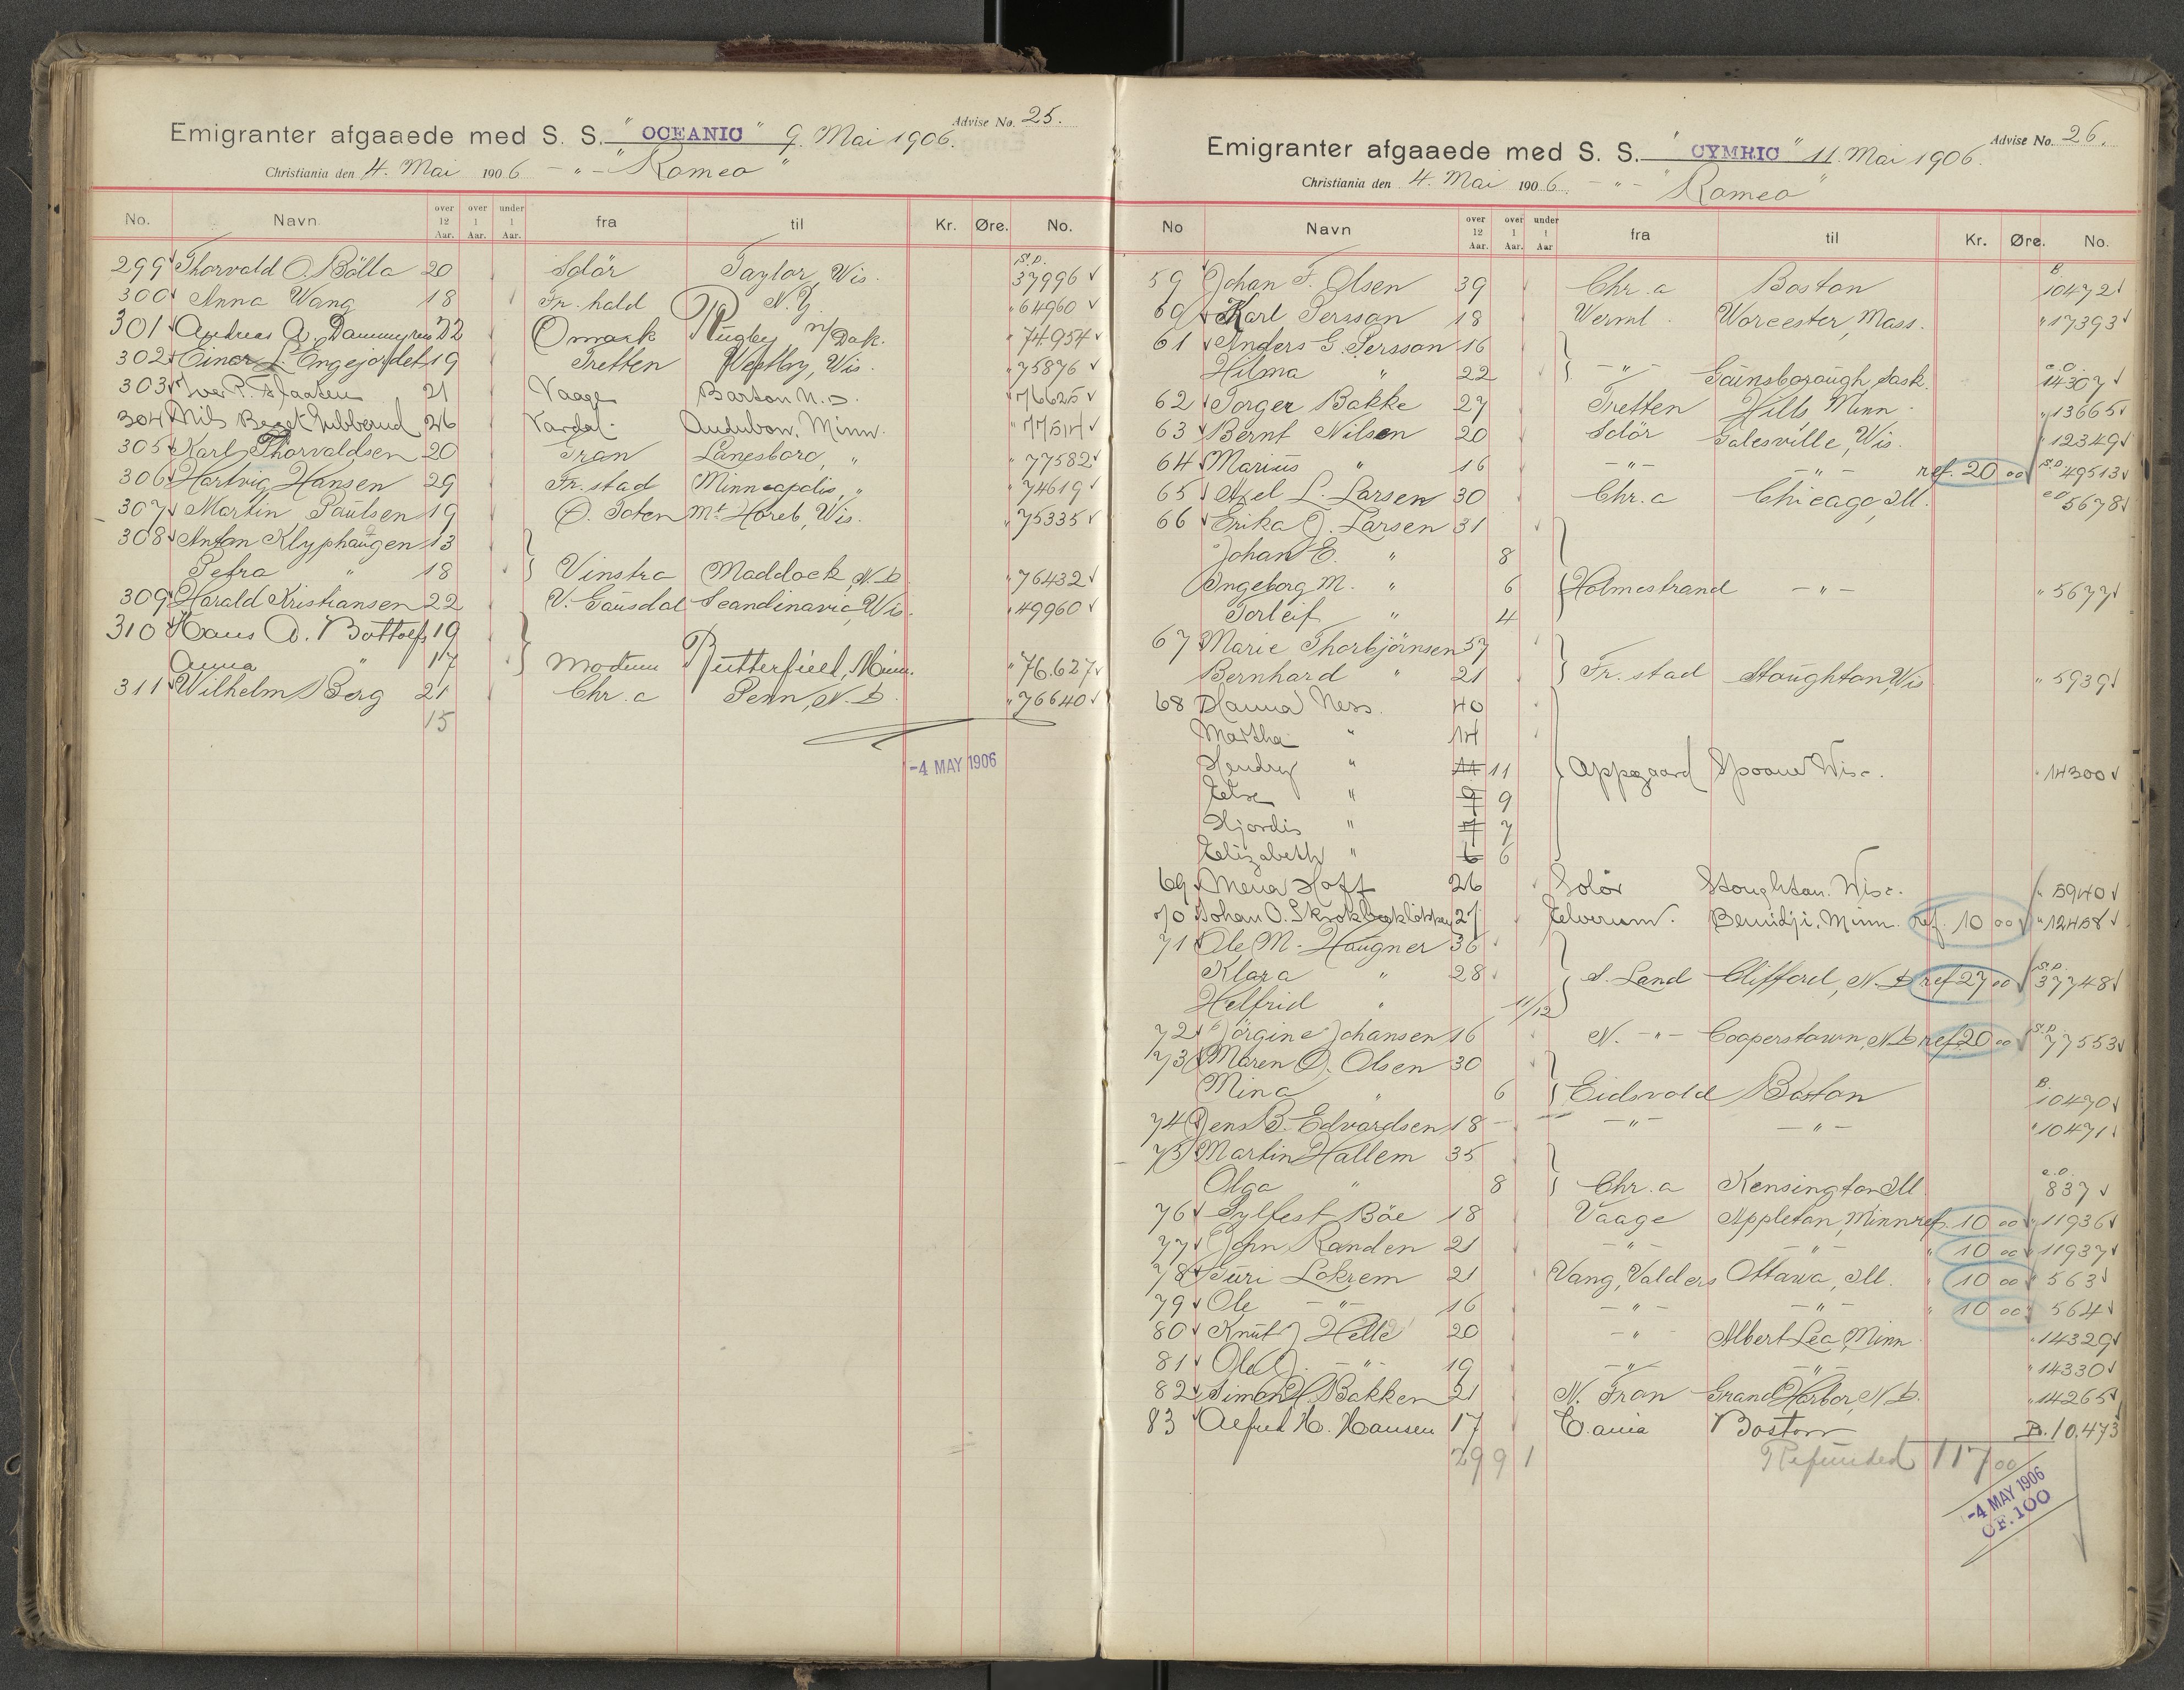 Advise No. 25.
Emigranter afgaaede med S. S. "OCEANIC" 9. Mai 1906.
Christiania den 4. Mai 1906 - " - "Romeo"
No. Navn over 12 Aar. over 1 Aar. under 1 Aar. fra til Kr. Øre. No.
299 Thorvald O. Bölla 20 Solör Taylor, Wis. S.P. 37996
300 Anna Wang 18 Fr. hald N.Y. " 64960
301 Andreas A. 22 Omark Rugby N/Dak. " 74954
302 Einar L. Engejordet 19 Tretten Westby, Wis. " 75876
303 Iver P. Flaaten 21 Vaage Barton N.D. " 76625
304 Nils Beret Lubberud 26 Vardal. Audubon, Minn. " 77514
305 Karl Thorvaldsen 20 Gran Lanesboro, " " 77582
306 Hartvig Hansen 29 Fr. stad Minneapolis, " " 74619
307 Martin Paulsen 19 Ø. Toten Mt Horeb, Wis. " 75335
308 Anton Klyphaugen 13
Petra " 18 } Vinstra Maddock, N.D. " 76432
309 Harald Kristiansen 22 V. Gausdal Scandinavia, Wis. " 49960
310 Hans A. Bottolfs 19
Anna " 17 } Modum Butterfield, Minn. " 76.627
311 Wilhelm Berg 21 Chr.a Penn, N.D. " 76640
15
-4 MAY 1906
Advise No. 26.
Emigranter afgaaede med S. S. "CYMRIC" 11. Mai 1906.
Christiania den 4. Mai 1906. - " - "Romeo"
No Navn over 12 Aar. over 1 Aar. under 1 Aar fra til Kr. Øre. No.
59 Johan F. Olsen 39 Chr.a Boston B. 10472
60 Karl Persson 18 Werml. Worcester, Mass. " 17393
61 Anders G. Persson 16
Hilma " 22 } - " - Gainsborough, Sask. e.O. 14307
62 Torger Bakke 27 Tretten Hills Minn. " 13665
63 Bernt Nilsen 20 Solör Galesville, Wis. " 12349
64 Marius " 16 - " - - " - ref. 20 00 S.P. 49513
65 Axel L. Larsen 30 Chr.a Chicago Ill. e.O. 5678
66 Erika J. Larsen 31
Johan E. " 8
Ingeborg M. " 6 } Holmestrand - " - " 5677
Torleif " 4
67 Marie Thorbjörnsen 57
Bernhard " 21 } Fr. stad Stoughton, Wis " 5939
68 Hanna Ness. 40
Martha " 14
Hendry " 11 11 Appegaard Spooner Wisc. " 14300
Else " 9 9
Hjordis " 7 7
Elizabeth " 6 6
69 Mena Hoff 26 Solör Stoughton. Wisc. " 5940
70 Johan O. 27 Elverum. Bemidji, Minn. ref. 10 00 " 12458
71 Ole M. Haugner 36
Klara " 28 } S. Land Clifford, N.D ref 27 00 S.P. 37748
Helfrid " 11/12
72 Jörgine Johansen 16 N. - " - Cooperstown, N.D ref. 20 00 S.P. 77553
73 Maren O. Olsen 30
Mina " 6 } Eidsvold Boston B. 10470
74 Jens B. Edvardsen 18 - " - - " - " 10471
75 Martin Hallem 35
Olga " 8 } Chr.a Kensington Ill e.O. 837
76 Sylfest Böe 18 Vaage Appleton, Minn ref. 10 00 " 11936
77 John Randen 21 - " - - " - " 10 00 " 11937
78 Turi Lokrem 21 Vang, Valders Ottawa, Ill. " 10 00 " 563
79 Ole - " - 16 - " - - " - " 10 00 " 564
80 Knut J Helle 20 - " - Albert Lea, Minn " 14329
81 Ole J. - " - 19 - " - - " - " 14330
82 Simen H. Bakken 21 N. Fron Grand Harbor, N.D. " 14265
83 Alfred H. Hansen 17 C.ania Boston B. 10.473
29 9 1 Refunded 117 00
-4 MAY 1906
CF. 100